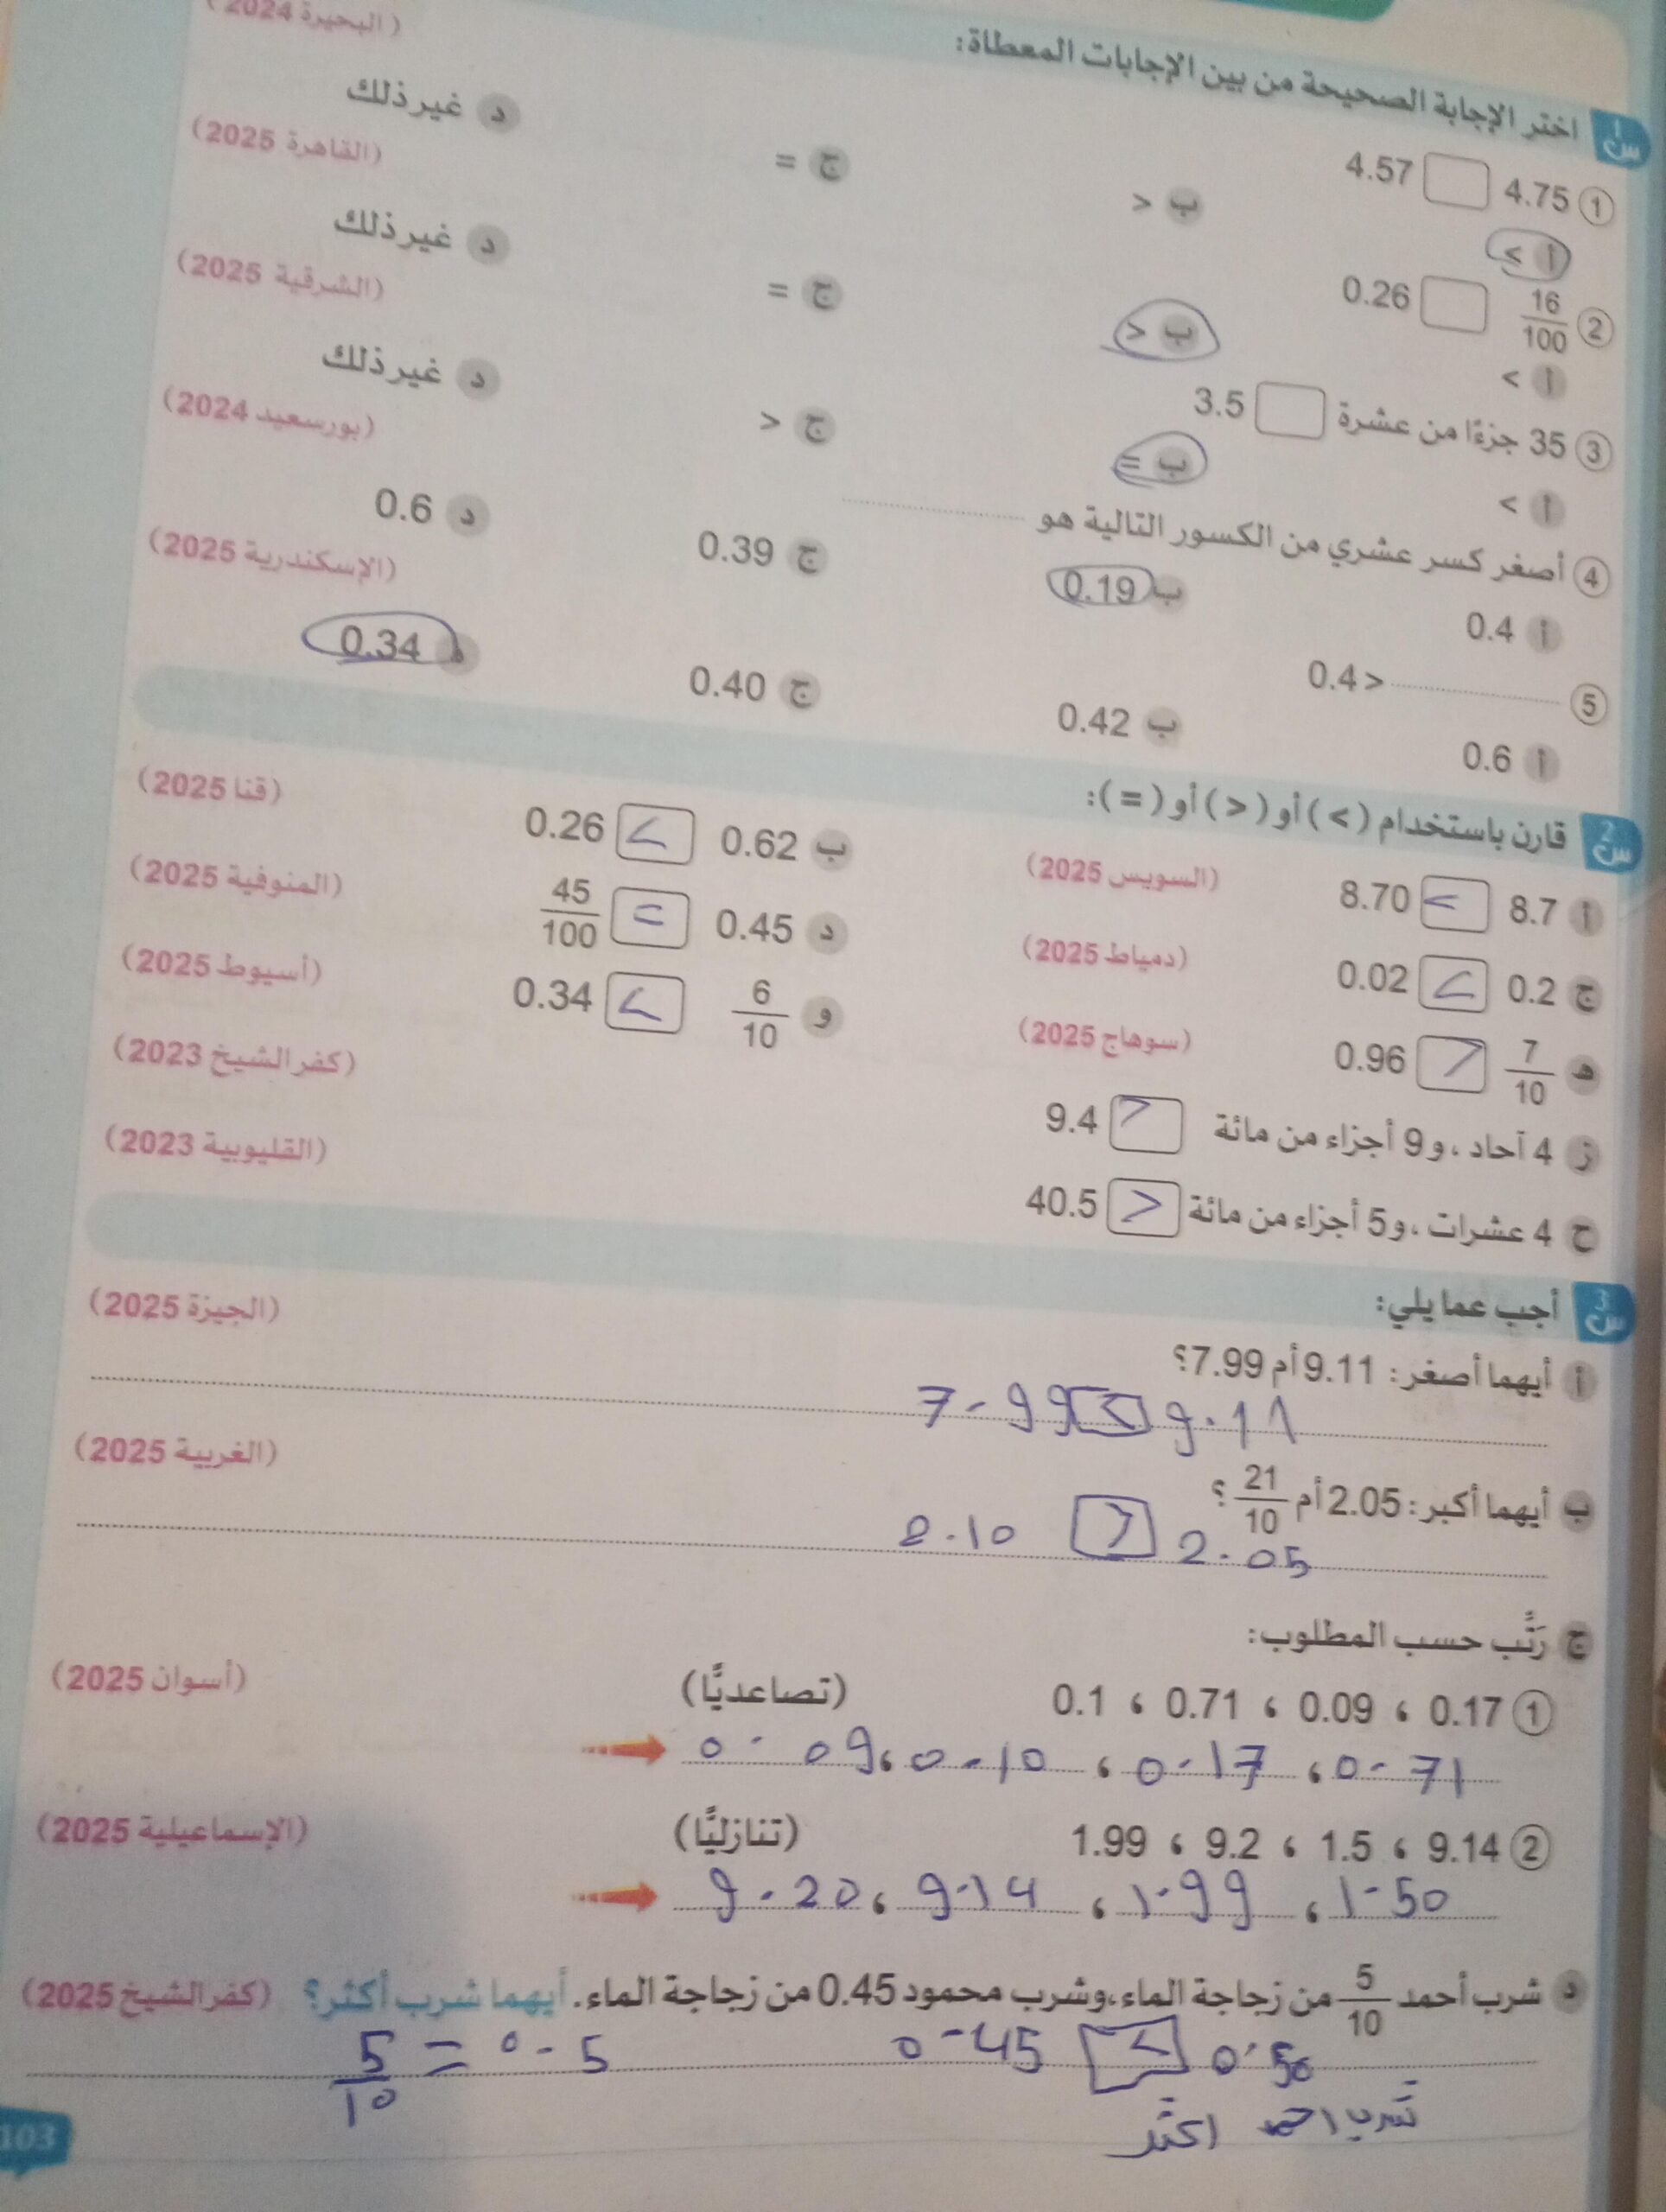 (البحيرة 2024)
س1 اختر الإجابة الصحيحة من بين الإجابات المعطاة:
① 4.75 □ 4.57
أ > ب < ج = د غير ذلك
(القاهرة 2025)
② 16/100 □ 0.26
أ > ب < ج = د غير ذلك
(الشرقية 2025)
③ 35 جزءًا من عشرة □ 3.5
أ > ب = ج < د غير ذلك
(بورسعيد 2024)
④ أصغر كسر عشري من الكسور التالية هو ........
أ 0.4 ب 0.19 ج 0.39 د 0.6
(الإسكندرية 2025)
⑤ ........ < 0.4
أ 0.6 ب 0.42 ج 0.40 د 0.34
س2 قارن باستخدام (>) أو (<) أو (=):
أ 8.7 = 8.70 (السويس 2025) ب 0.62 > 0.26 (قنا 2025)
ج 0.2 > 0.02 (دمياط 2025) د 0.45 = 45/100 (المنوفية 2025)
هـ 7/10 < 0.96 (سوهاج 2025) و 6/10 > 0.34 (أسيوط 2025)
ز 4 آحاد، و9 أجزاء من مائة < 9.4 (كفر الشيخ 2023)
ح 4 عشرات، و5 أجزاء من مائة < 40.5 (القليوبية 2023)
س3 أجب عما يلي:
أ أيهما أصغر: 9.11 أم 7.99؟ (الجيزة 2025)
9.11 > 7.99
ب أيهما أكبر: 2.05 أم 21/10؟ (الغربية 2025)
2.05 < 2.10
ج رتِّب حسب المطلوب:
① 0.17 ، 0.09 ، 0.71 ، 0.1 (تصاعديًّا) (أسوان 2025)
0.09، 0.10 ، 0.17 ، 0.71
② 9.14 ، 1.5 ، 9.2 ، 1.99 (تنازليًّا) (الإسماعيلية 2025)
9.20 ، 9.14 ، 1.99 ، 1.50
د شرب أحمد 5/10 من زجاجة الماء، وشرب محمود 0.45 من زجاجة الماء. أيهما شرب أكثر؟ (كفر الشيخ 2025)
0.50 > 0.45 5/10 = 0.5
شرب احمد اكثر
103